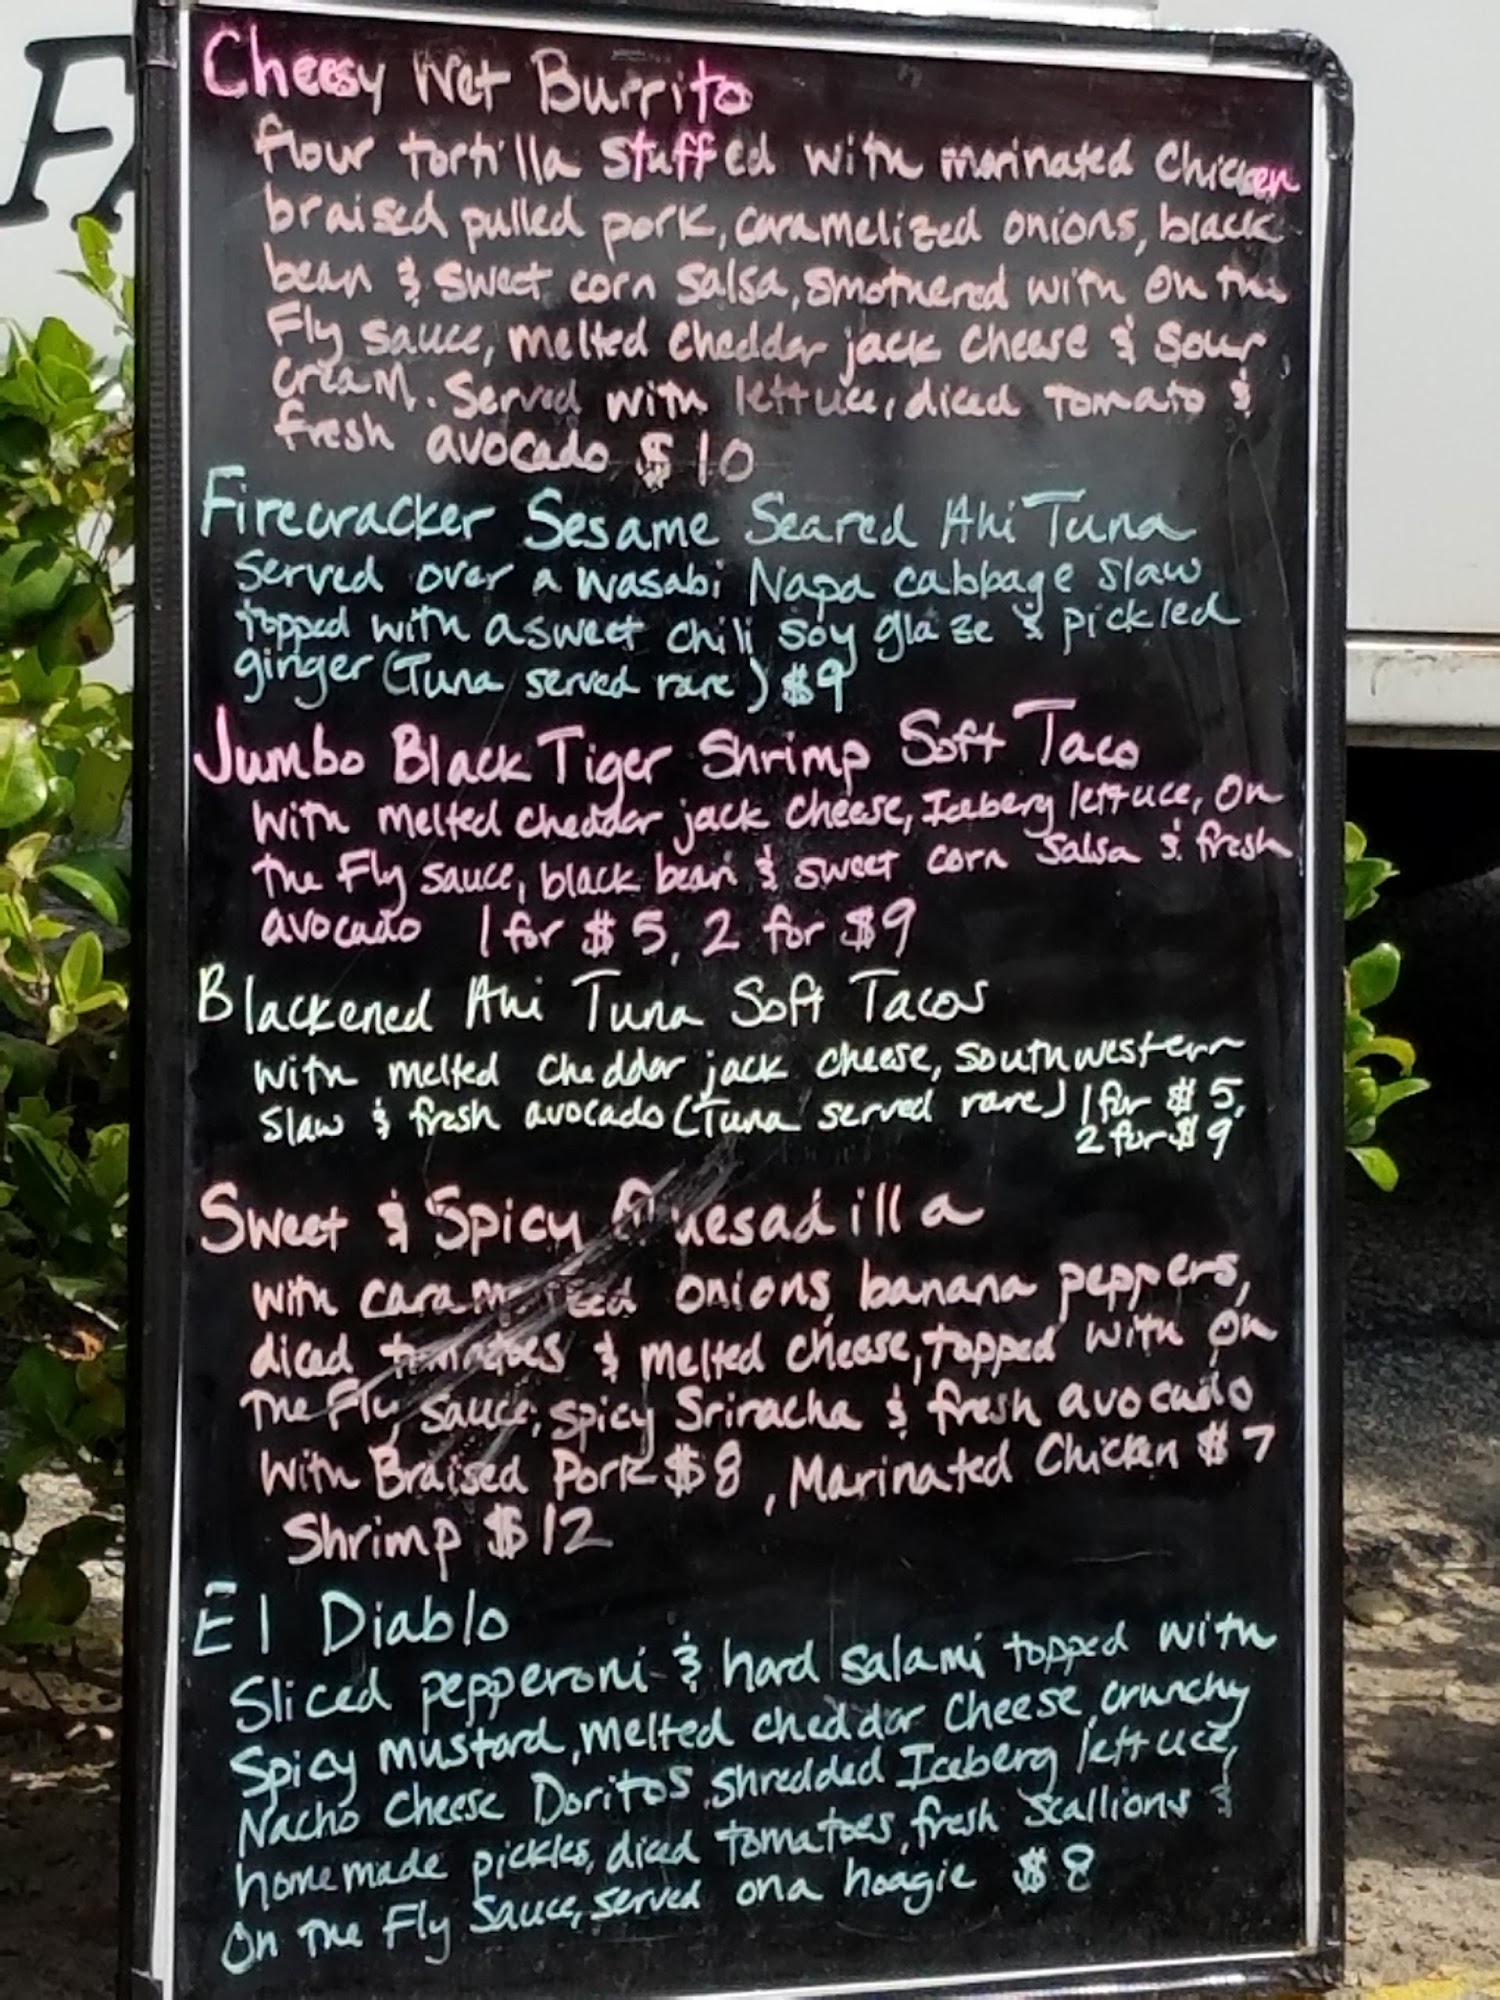 FA
Cheesy Wet Burrito
flour tortilla stuffed with marinated Chicken
braised pulled pork, caramelized onions, black
bean & sweet corn salsa, smothered with On the
Fly sauce, melted cheddar jack cheese & sour
cream. Served with lettuce, diced tomato &
fresh avocado $10
Firecracker Sesame Seared Ahi Tuna
Served over a wasabi Napa cabbage slaw
topped with a sweet chili soy glaze & pickled
ginger (Tuna served rare) $9
Jumbo Black Tiger Shrimp Soft Taco
with melted cheddar jack cheese, Iceberg lettuce, On
The Fly sauce, black bean & sweet corn salsa & fresh
avocado 1 for $5, 2 for $9
Blackened Ahi Tuna Soft Tacos
with melted cheddar jack cheese, southwestern
slaw & fresh avocado (Tuna served rare) 1 for $5,
2 for $9
Sweet & Spicy Quesadilla
with caramelized onions, banana peppers,
diced tomatoes & melted cheese, topped with On
The Fly sauce, spicy Sriracha & fresh avocado
with Braised Pork $8, Marinated Chicken $7
Shrimp $12
El Diablo
Sliced pepperoni & hard salami topped with
spicy mustard, melted cheddar cheese, crunchy
Nacho cheese Doritos, shredded Iceberg lettuce,
homemade pickles, diced tomatoes, fresh scallions &
On The Fly sauce, served on a hoagie $8